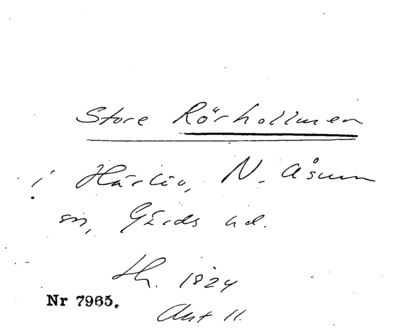 Store Rörhollmen
i Härlöv, N. Åsum
sn, Gärds hd.
Hr. 1824
Nr 7965.
Akt 11.